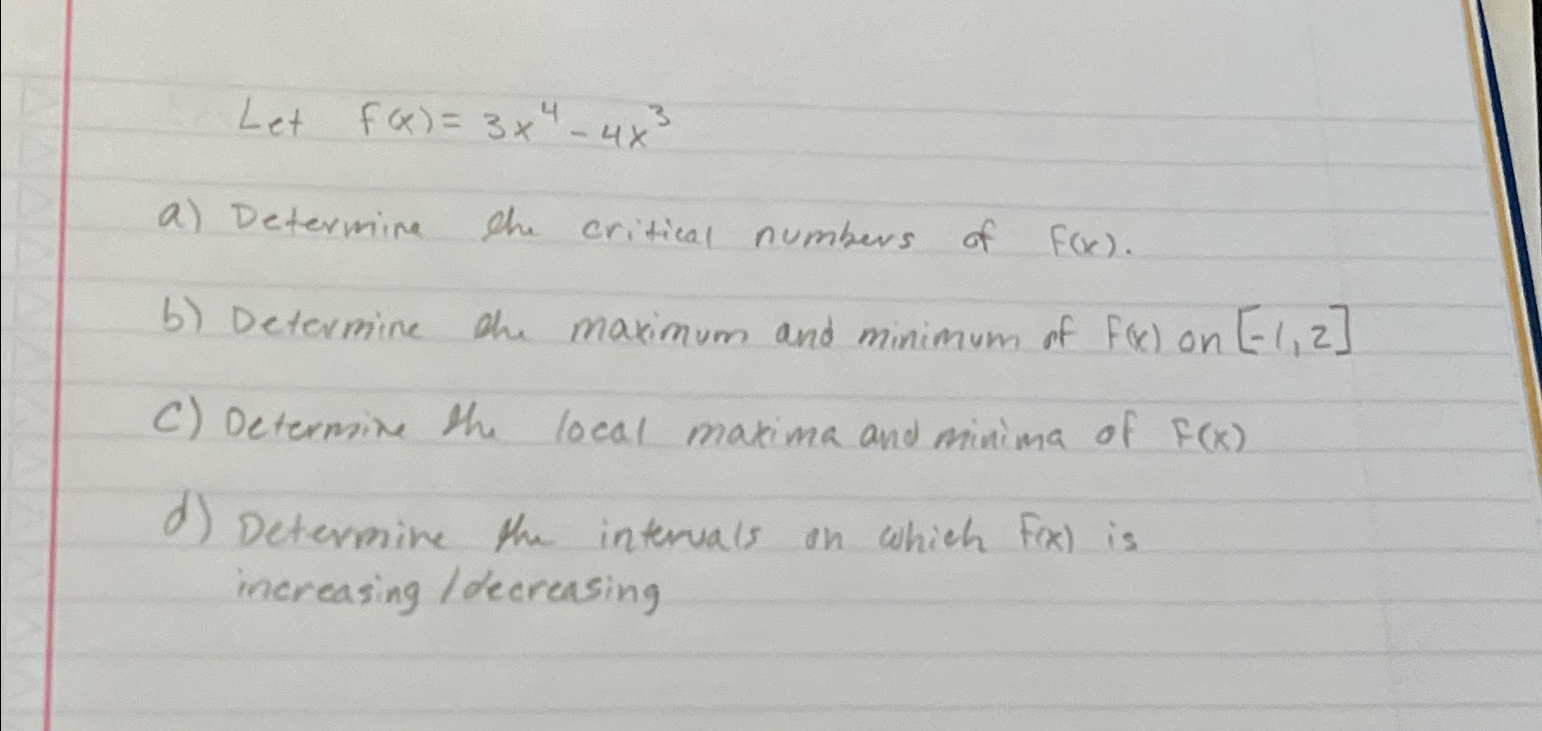 Let f(x) = 3x⁴ - 4x³
a) Determine the critical numbers of f(x).
b) Determine the maximum and minimum of f(x) on [-1, 2]
c) Determine the local maxima and minima of f(x)
d) Determine the intervals on which f(x) is
increasing / decreasing